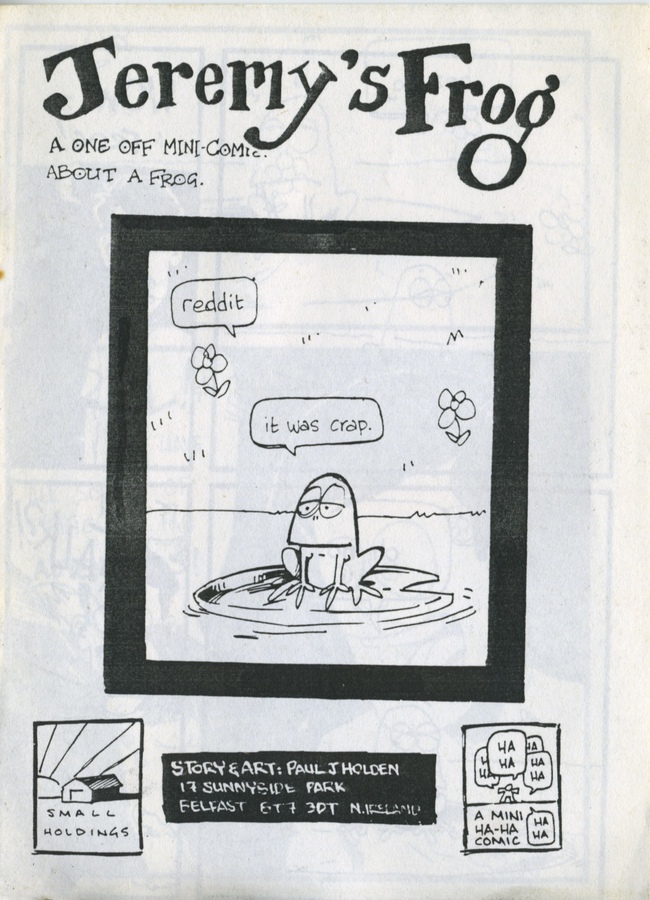 Jeremy's Frog
A ONE OFF MINI-COMIC.
ABOUT A FROG.
reddit
it was crap.
SMALL
HOLDINGS
STORY & ART: PAUL J HOLDEN
17 SUNNYSIDE PARK
BELFAST BT7 3DT N.IRELAND
HA
HA
HA
HA
HA
HA
HA
A MINI
HA-HA
COMIC
HA
HA